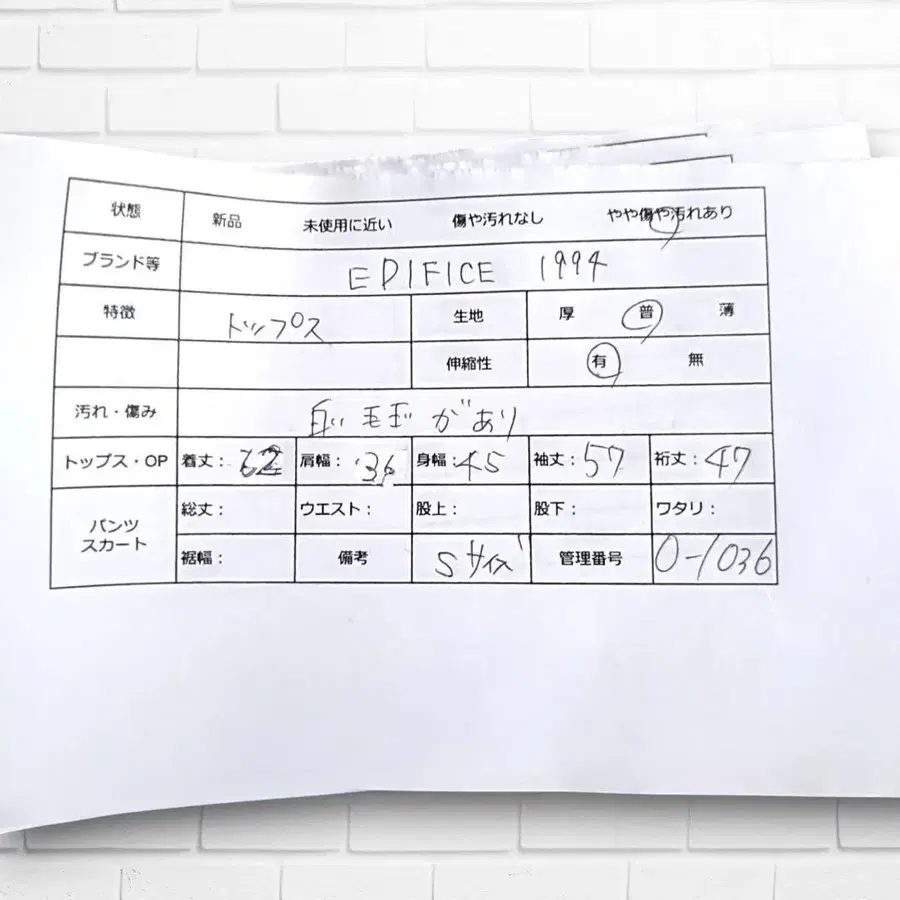 状態 新品 未使用に近い 傷や汚れなし やや傷や汚れあり
ブランド等 EDIFICE 1994
特徴 トップス 生地 厚 普 薄
伸縮性 有 無
汚れ・傷み 毛玉があり
トップス・OP 着丈: 62 肩幅: 36 身幅: 45 袖丈: 57 裄丈: 47
パンツ スカート 総丈: ウエスト: 股上: 股下: ワタリ:
裾幅: 備考 Sサイズ 管理番号 0-1036